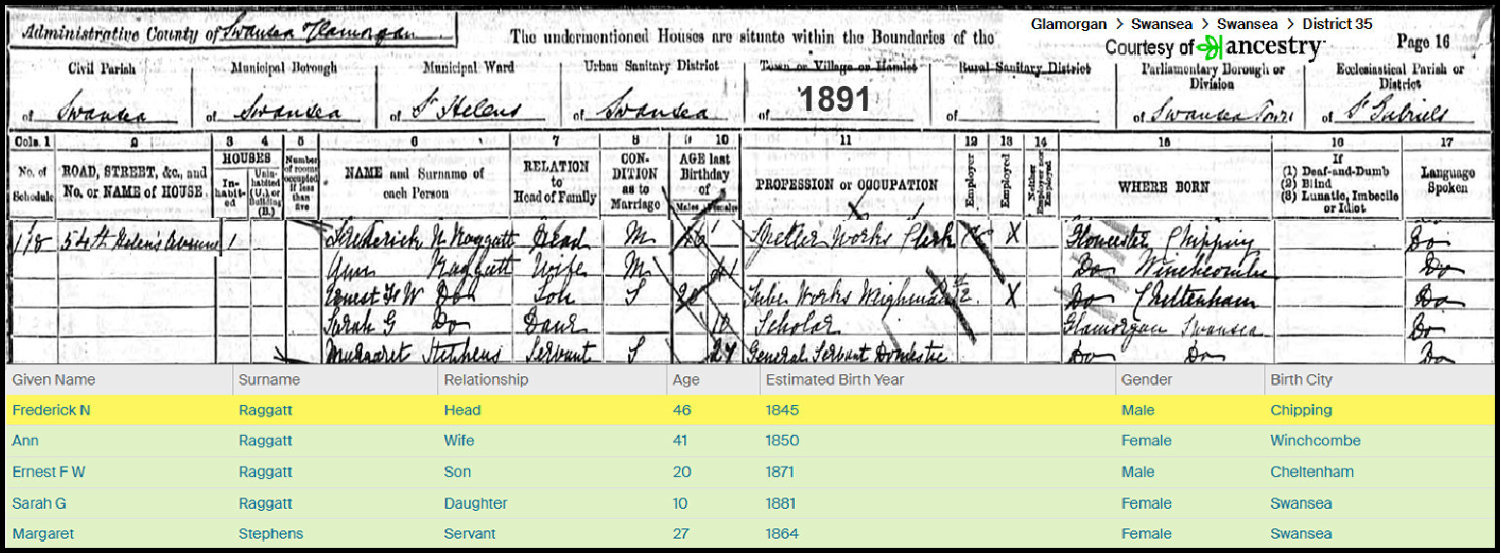 Administrative County of Swansea Glamorgan
The undermentioned Houses are situate within the Boundaries of the
Glamorgan > Swansea > Swansea > District 35
Courtesy of ancestry
Page 16
Civil Parish
of Swansea
Municipal Borough
of Swansea
Municipal Ward
of St Helens
Urban Sanitary District
of Swansea
Town or Village or Hamlet
of
1891
Rural Sanitary District
of
Parliamentary Borough or Division
of Swansea Town
Ecclesiastical Parish or District
of St Gabriels
Cols. 1 2 3 4 5 6 7 8 9 10 11 12 13 14 15 16 17
No. of Schedule
ROAD, STREET, &c., and No. or NAME of HOUSE
HOUSES
In-habit-ed
Unin-habited (U.) or Building (B.)
Number of rooms occupied if less than five
NAME and Surname of each Person
RELATION to Head of Family
CON-DITION as to Marriage
AGE last Birthday of
Males Females
PROFESSION or OCCUPATION
Employer
Employed
Neither Employer nor Employed
WHERE BORN
If
(1) Deaf-and-Dumb
(2) Blind
(3) Lunatic, Imbecile or Idiot
Language Spoken
118 54 St Helen's Avenue 1 Frederick N Raggatt Head M 46 Spelter Works Clerk X Gloucester Chipping Do
Ann Raggatt Wife M 41 Do Winchcombe Do
Ernest F W Do Son S 20 Tube Works Weighman X Do Cheltenham Do
Sarah G Do Daur 10 Scholar Glamorgan Swansea Do
Margaret Stephens Servant S 27 General Servant Domestic Do Do Do
Given Name Surname Relationship Age Estimated Birth Year Gender Birth City
Frederick N Raggatt Head 46 1845 Male Chipping
Ann Raggatt Wife 41 1850 Female Winchcombe
Ernest F W Raggatt Son 20 1871 Male Cheltenham
Sarah G Raggatt Daughter 10 1881 Female Swansea
Margaret Stephens Servant 27 1864 Female Swansea